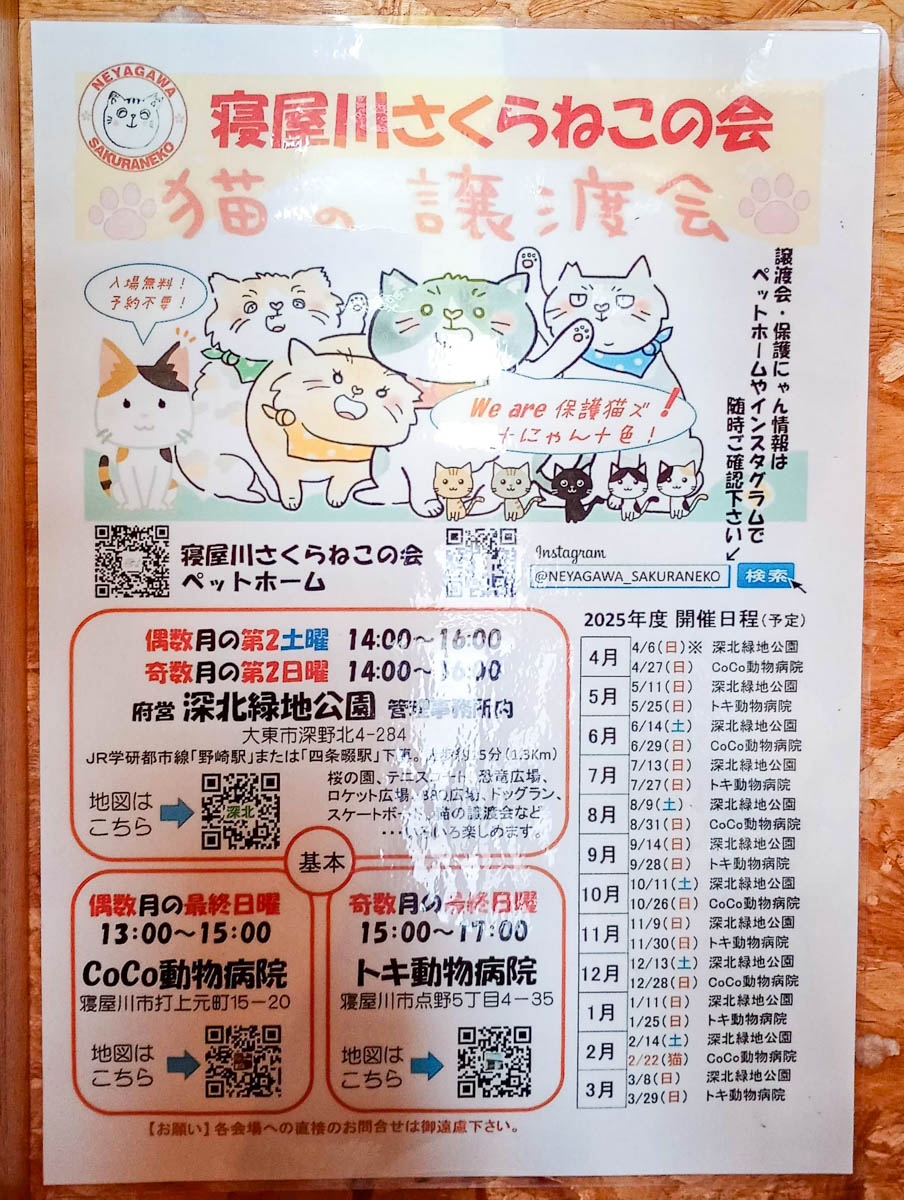 NEYAGAWA
SAKURANEKO
寝屋川さくらねこの会
猫の譲渡会
入場無料！
予約不要！
譲渡会・保護にゃん情報は
ペットホームやインスタグラムで
随時ご確認下さい
We are 保護猫ズ！
十にゃん十色！
寝屋川さくらねこの会
ペットホーム
Instagram
@NEYAGAWA_SAKURANEKO 検索
偶数月の第2土曜 14:00～16:00
奇数月の第2日曜 14:00～16:00
府営 深北緑地公園 管理事務所内
大東市深野北4-284
JR学研都市線「野崎駅」または「四条畷駅」下車。 5分(1.3Km)
地図は
こちら
深北
桜の園、テニスコート、恐竜広場、
ロケット広場、BBQ広場、ドッグラン、
スケートボード、猫の譲渡会など
・・・いろいろ楽しめます。
基本
偶数月の最終日曜
13:00～15:00
CoCo動物病院
寝屋川市打上元町15－20
地図は
こちら
奇数月の最終日曜
15:00～17:00
トキ動物病院
寝屋川市点野5丁目4－35
地図は
こちら
2025年度 開催日程(予定)
4月
4/6(日)※ 深北緑地公園
4/27(日) CoCo動物病院
5月
5/11(日) 深北緑地公園
5/25(日) トキ動物病院
6月
6/14(土) 深北緑地公園
6/29(日) CoCo動物病院
7月
7/13(日) 深北緑地公園
7/27(日) トキ動物病院
8月
8/9(土) 深北緑地公園
8/31(日) CoCo動物病院
9月
9/14(日) 深北緑地公園
9/28(日) トキ動物病院
10月
10/11(土) 深北緑地公園
10/26(日) CoCo動物病院
11月
11/9(日) 深北緑地公園
11/30(日) トキ動物病院
12月
12/13(土) 深北緑地公園
12/28(日) CoCo動物病院
1月
1/11(日) 深北緑地公園
1/25(日) トキ動物病院
2月
2/14(土) 深北緑地公園
2/22(猫) CoCo動物病院
3月
3/8(日) 深北緑地公園
3/29(日) トキ動物病院
【お願い】各会場への直接のお問合せは御遠慮下さい。